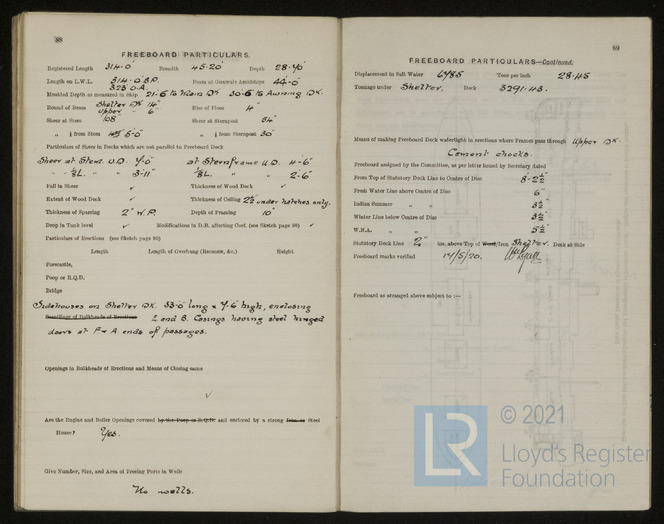 88
FREEBOARD PARTICULARS.
Registered Length 314.0' Breadth 45.20 Depth 28.40
Length on L.W.L. 314.0 B.P. Beam at Gunwale Amidships 44.0
323 O.A.
Moulded Depth as measured in Ship 21-6 to Main Dk 30-6 to Awning Dk.
Round of Beam Shelter Dk 14" Rise of Floor 4"
Upper " 6"
Sheer at Stem 108 Sheer at Sternpost 54"
" ⅛ from Stem 5-0" " ⅛ from Sternpost 30"
Particulars of Sheer in Decks which are not parallel to Freeboard Deck
Sheer at Stem U.D. 7-0" at Sternframe U.D. 4-6"
" ⅛L. " 3-11" " ⅛L. " " 2-6"
Fall in Sheer ✓ Thickness of Wood Deck ✓
Extent of Wood Deck ✓ Thickness of Ceiling 2½ under hatches only.
Thickness of Sparring 2" W.P. Depth of Framing 10"
Drop in Tank level ✓ Modifications in D.B. affecting Coef. (see Sketch page 90) ✓
Particulars of Erections (see Sketch page 90)
Length Length of Overhang (Recesses, &c.) Height
Forecastle,
Poop or R.Q.D.
Bridge
Sidehouses on Shelter Dk. 33-0 long x 7-6 high, enclosing
Scantlings of Bulkheads of Erections E and B. Casings having steel hinged
doors at F & A ends of passages.
Openings in Bulkheads of Erections and Means of Closing same
✓
Are the Engine and Boiler Openings covered by the Poop or R.Q.D. and enclosed by a strong Iron or Steel
House? Yes.
Give Number, Size, and Area of Freeing Ports in Wells
No wells.
89
FREEBOARD PARTICULARS—Continued.
Displacement in Salt Water 6485 Tons per inch 28.45
Tonnage under Shelter. Deck 3291.43.
Means of making Freeboard Deck watertight in erections where Frames pass through Upper Dk.
Cement chocks.
Freeboard assigned by the Committee, as per letter issued by Secretary dated
From Top of Statutory Deck Line to Centre of Disc 8-2½
Fresh Water Line above Centre of Disc 6"
Indian Summer " " 3½
Winter Line below Centre of Disc 3½
W.N.A. " " 5½
Statutory Deck Line 2" ins. above Top of Wood/Iron Shelter. Deck at Side
Freeboard marks verified 14/5/20.
Freeboard as arranged above subject to :—
LR © 2021
Lloyd's Register
Foundation